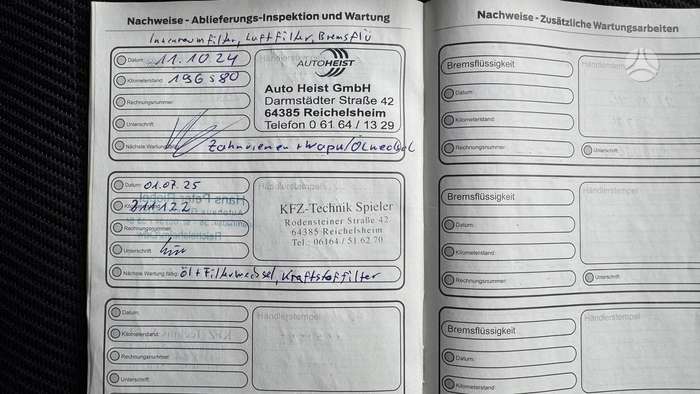 Nachweise - Ablieferungs-Inspektion und Wartung
Innenraumfilter, Luftfilter, Bremsflü
Datum: 11.10.24
Kilometerstand: 196580
Rechnungsnummer:
Unterschrift:
Nächste Wartung fällig: Zahnriemen + Wapu/Ölwechsel
AUTOHEIST
Auto Heist GmbH
Darmstädter Straße 42
64385 Reichelsheim
Telefon 0 61 64 / 13 29
Datum: 01.07.25
211122
Rechnungsnummer:
Unterschrift:
Nächste Wartung fällig: Öl + Filterwechsel, Kraftstoffilter
Händlerstempel
KFZ-Technik Spieler
Rodensteiner Straße 42
64385 Reichelsheim
Tel.: 06164 / 51 62 70
Datum:
Kilometerstand:
Rechnungsnummer:
Unterschrift:
Händlerstempel
Nachweise - Zusätzliche Wartungsarbeiten
Bremsflüssigkeit
Datum:
Kilometerstand:
Rechnungsnummer:
Unterschrift:
Bremsflüssigkeit
Datum:
Kilometerstand:
Rechnungsnummer:
Händlerstempel
Unterschrift:
Bremsflüssigkeit
Datum:
Kilometerstand:
Händlerstempel